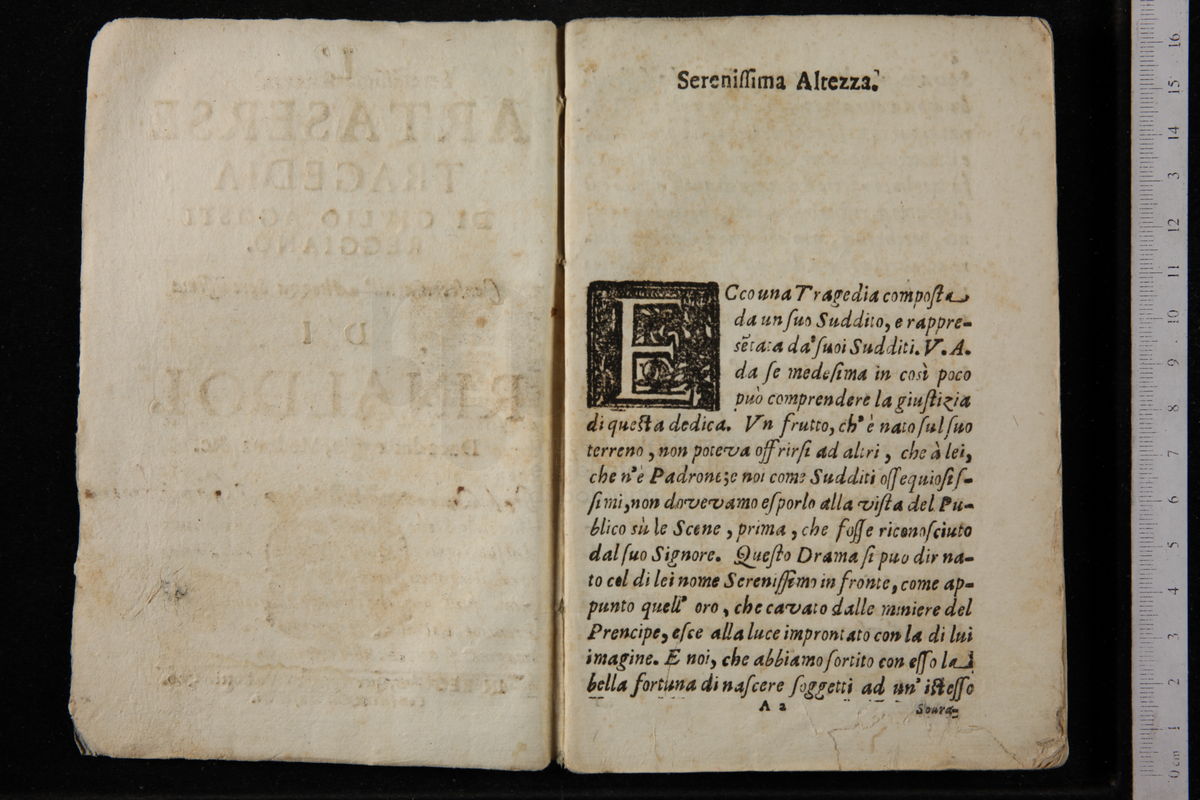 Sereniſſima Altezza.
ECco una Tragedia compoſta
da un ſuo Suddito, e rappre-
sẽtata da' ſuoi Sudditi. V. A.
da ſe medeſima in così poco
può comprendere la giuſtizia
di queſta dedica. Vn frutto, ch' è nato ſul ſuo
terreno, non poteva offrirſi ad altri, che à lei,
che n' è Padrone; e noi come Sudditi oſſequioſiſ-
ſimi, non dovevamo eſporlo alla viſta del Pu-
blico sù le Scene, prima, che foſſe riconoſciuto
dal ſuo Signore. Queſto Drama ſi puo dir na-
to col di lei nome Sereniſſimo in fronte, come ap-
punto quell' oro, che cavato dalle miniere del
Prencipe, eſce alla luce improntato con la di lui
imagine. E noi, che abbiamo ſortito con eſſo la
bella fortuna di naſcere ſoggetti ad un' iſteſſo
A 2 Soura-
L'
ARTASERSE
TRAGEDIA
DI GIVLIO AGOSTI
REGGIANO.
DI
RINALDO I.
16
15
14
3
12
11
10
9
8
7
6
5
4
3
2
1
0 cm